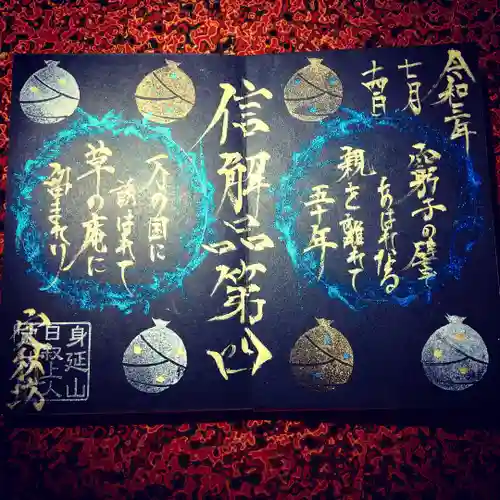 令和三年
七月
十四日
窮子の譬
あはれなる
親を離れて
五十年
信解品第四
万の国に
誘はれて
草の庵に
身延山
日叡上人
武井坊